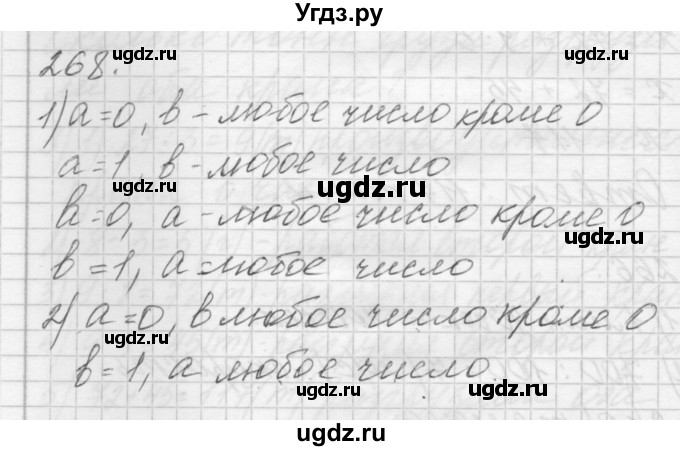 Угдз.ру
ugdz.ru ugdz.ru
268.
1) а=0, в - любое число кроме 0
а=1, в - любое число
ugdz.ru
в=0, а - любое число кроме 0
ugdz.ru ugdz.ru
в=1, а=любое число
2) а=0, в любое число кроме 0
ugdz.ru
в=1, а любое число
ugdz.ru ugdz.ru
ugdz.ru